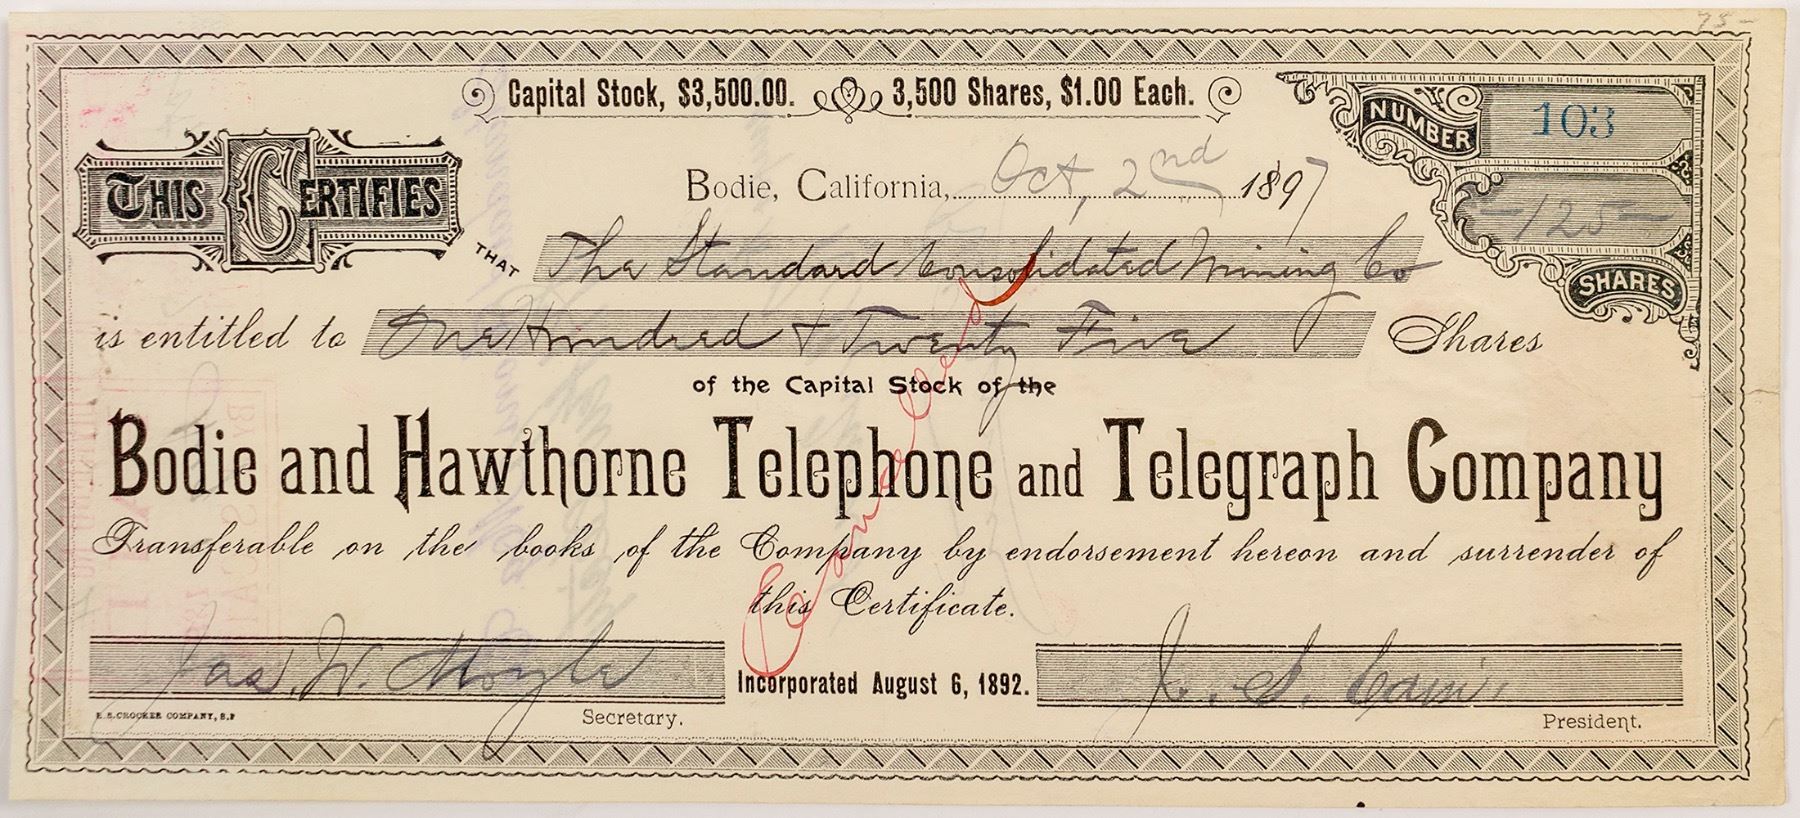 75-
Capital Stock, $3,500.00. 3,500 Shares, $1.00 Each.
NUMBER 103
THIS CERTIFIES
Bodie, California, Oct, 2nd 1897
-125-
SHARES
THAT The Standard Consolidated Mining Co
is entitled to One Hundred + Twenty Five Shares
of the Capital Stock of the
Bodie and Hawthorne Telephone and Telegraph Company
Transferable on the books of the Company by endorsement hereon and surrender of
this Certificate.
Cancelled
Jas. W. Moyle Incorporated August 6, 1892. J. S. Cain.
H.S. CROCKER COMPANY, S.F Secretary. President.